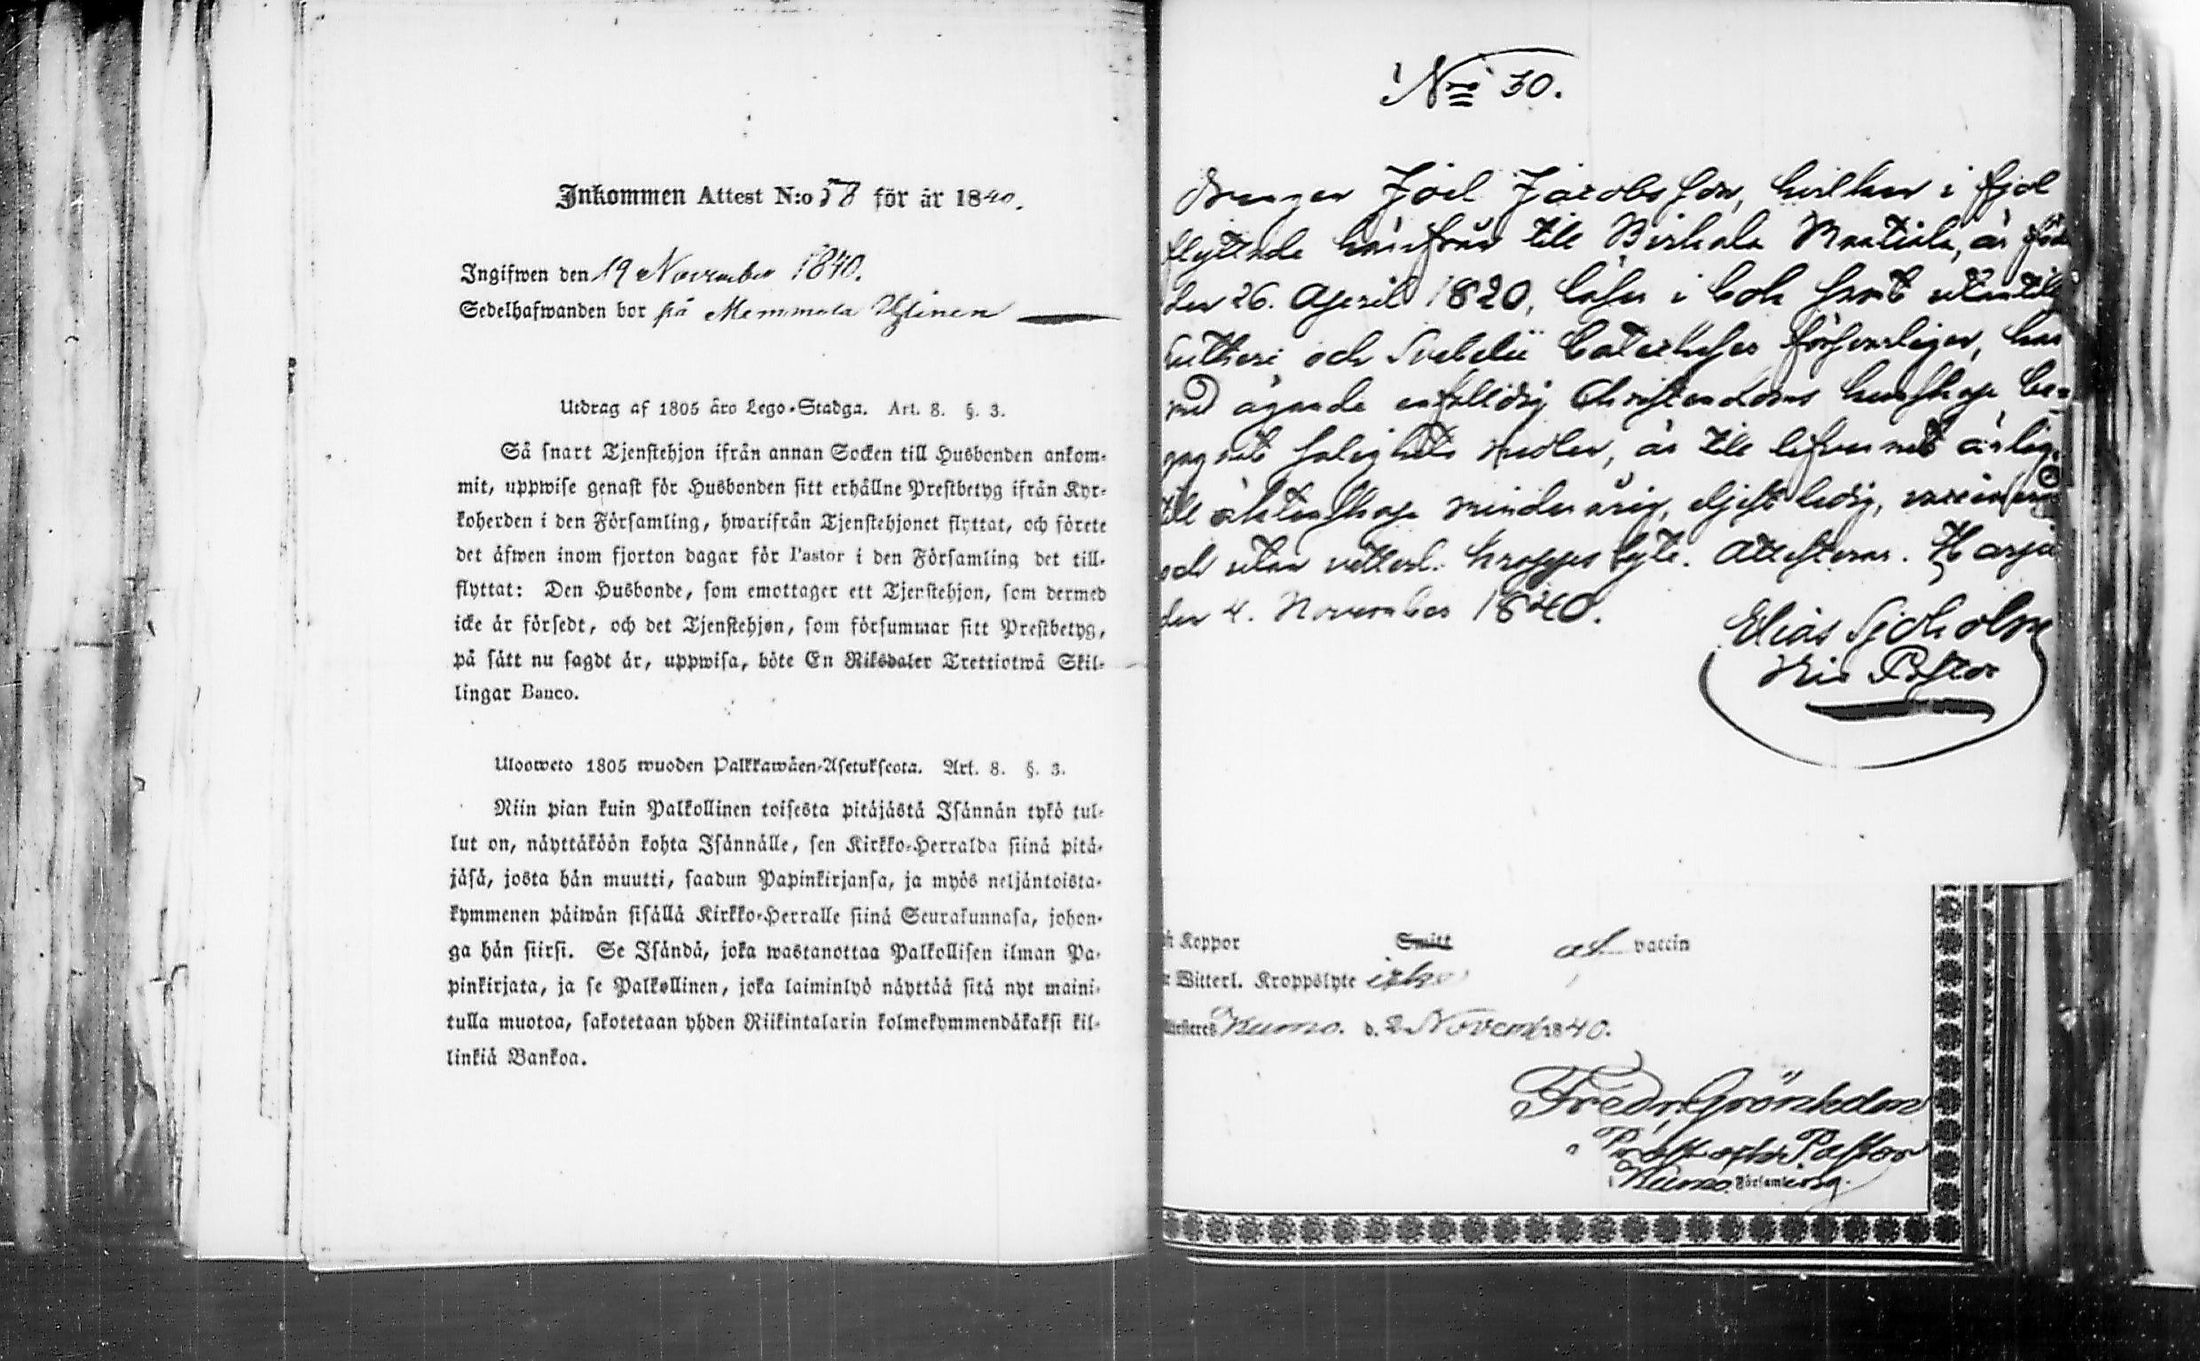 Inkommen Attest N:o 58 för år 1840.
Ingifwen den 19 November 1840.
Sedelhafwanden bor på Memmola Yltinen
Utdrag af 1805 åro Lego-Stadga. Art. 8. §. 3.
Så snart Tjenstehjon ifrån annan Socken till Husbonden ankom-
mit, uppwise genast för Husbonden sitt erhållne Prestbetyg ifrån Kyr-
koherden i den Församling, hwarifrån Tjenstehjonet flyttat, och förete
det äfwen inom fjorton dagar för Pastor i den Församling det till-
flyttat: Den Husbonde, som emottager ett Tjenstehjon, som dermed
icke är försedt, och det Tjenstehjon, som försummar sitt Prestbetyg,
på sätt nu sagdt är, uppwisa, böte En Riksdaler Trettiotwå Skil-
lingar Banco.
Uloosweto 1805 wuoden Palkkawäen-Asetuksesta. Art. 8. §. 3.
Niin pian kuin Palkollinen toisesta pitäjästä Isännän tykö tul-
lut on, näyttäköön kohta Isännälle, sen Kirkko-Herralda siinä pitä-
jäsä, josta hän muutti, saadun Papinkirjansa, ja myös neljäntoista-
kymmenen päiwän sisällä Kirkko-Herralle siinä Seurakunnasa, johon-
ga hän siirsi. Se Isändä, joka wastanottaa Palkollisen ilman Pa-
pinkirjata, ja se Palkollinen, joka laiminlyö näyttää sitä nyt maini-
tulla muotoa, sakotetaan yhden Riikintalarin kolmekymmendäkaksi kil-
linkiä Bankoa.
Nro 30.
Drengen Joel Jacobsson, hvilken i fjol
flyttade härifrån till Birkala Maatiala, är född
den 26. April 1820, läser i bok samt utantill
Lutheri och Svebelii Catecheser försvarligen, har
med ägande enfaldig Christendoms kunskap be-
gagnat salighets medlen, är till lefvernet ärlig,
till äktenskap minderårig, eljest ledig, vaccinerad
och utan vetterl. kroppslyte. Attesteras. Harja
den 4. November 1840.
Elias Sjöholm
Vice Pastor
Koppor Smitt af vaccin
Witterl. Kroppslyte icke
Kumo. d. 2 Novemb 1840.
Fredr. Grönholm
Prost och Pastor
i Kumo Församling.